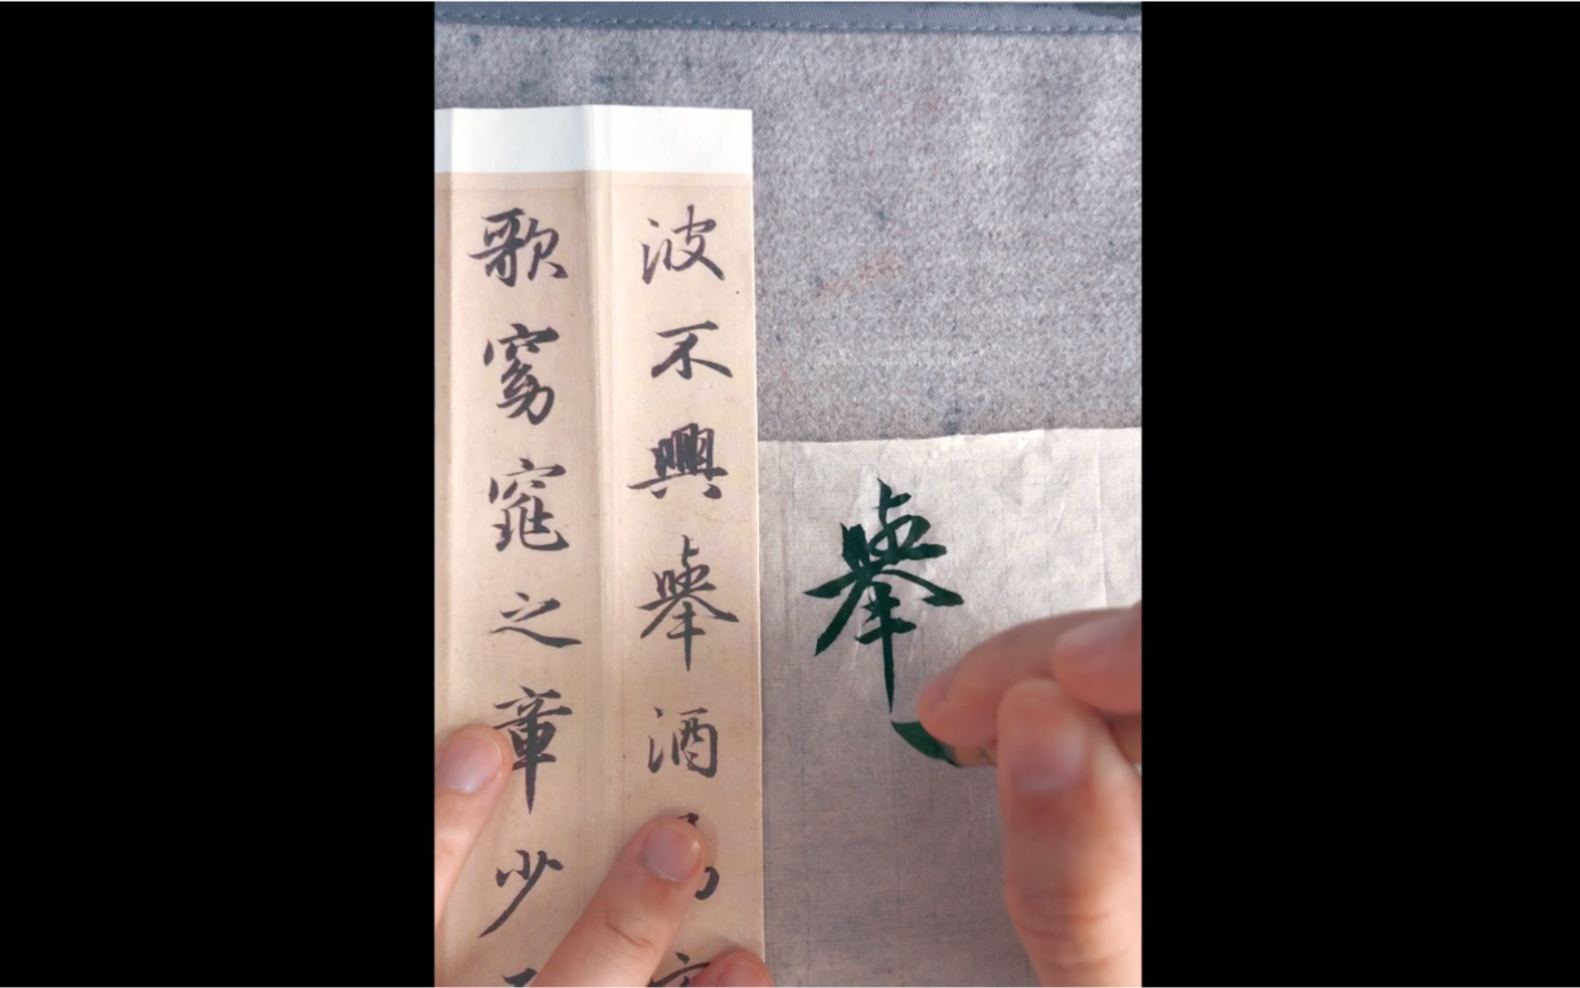 舉
波不興舉酒
歌窈窕之章少